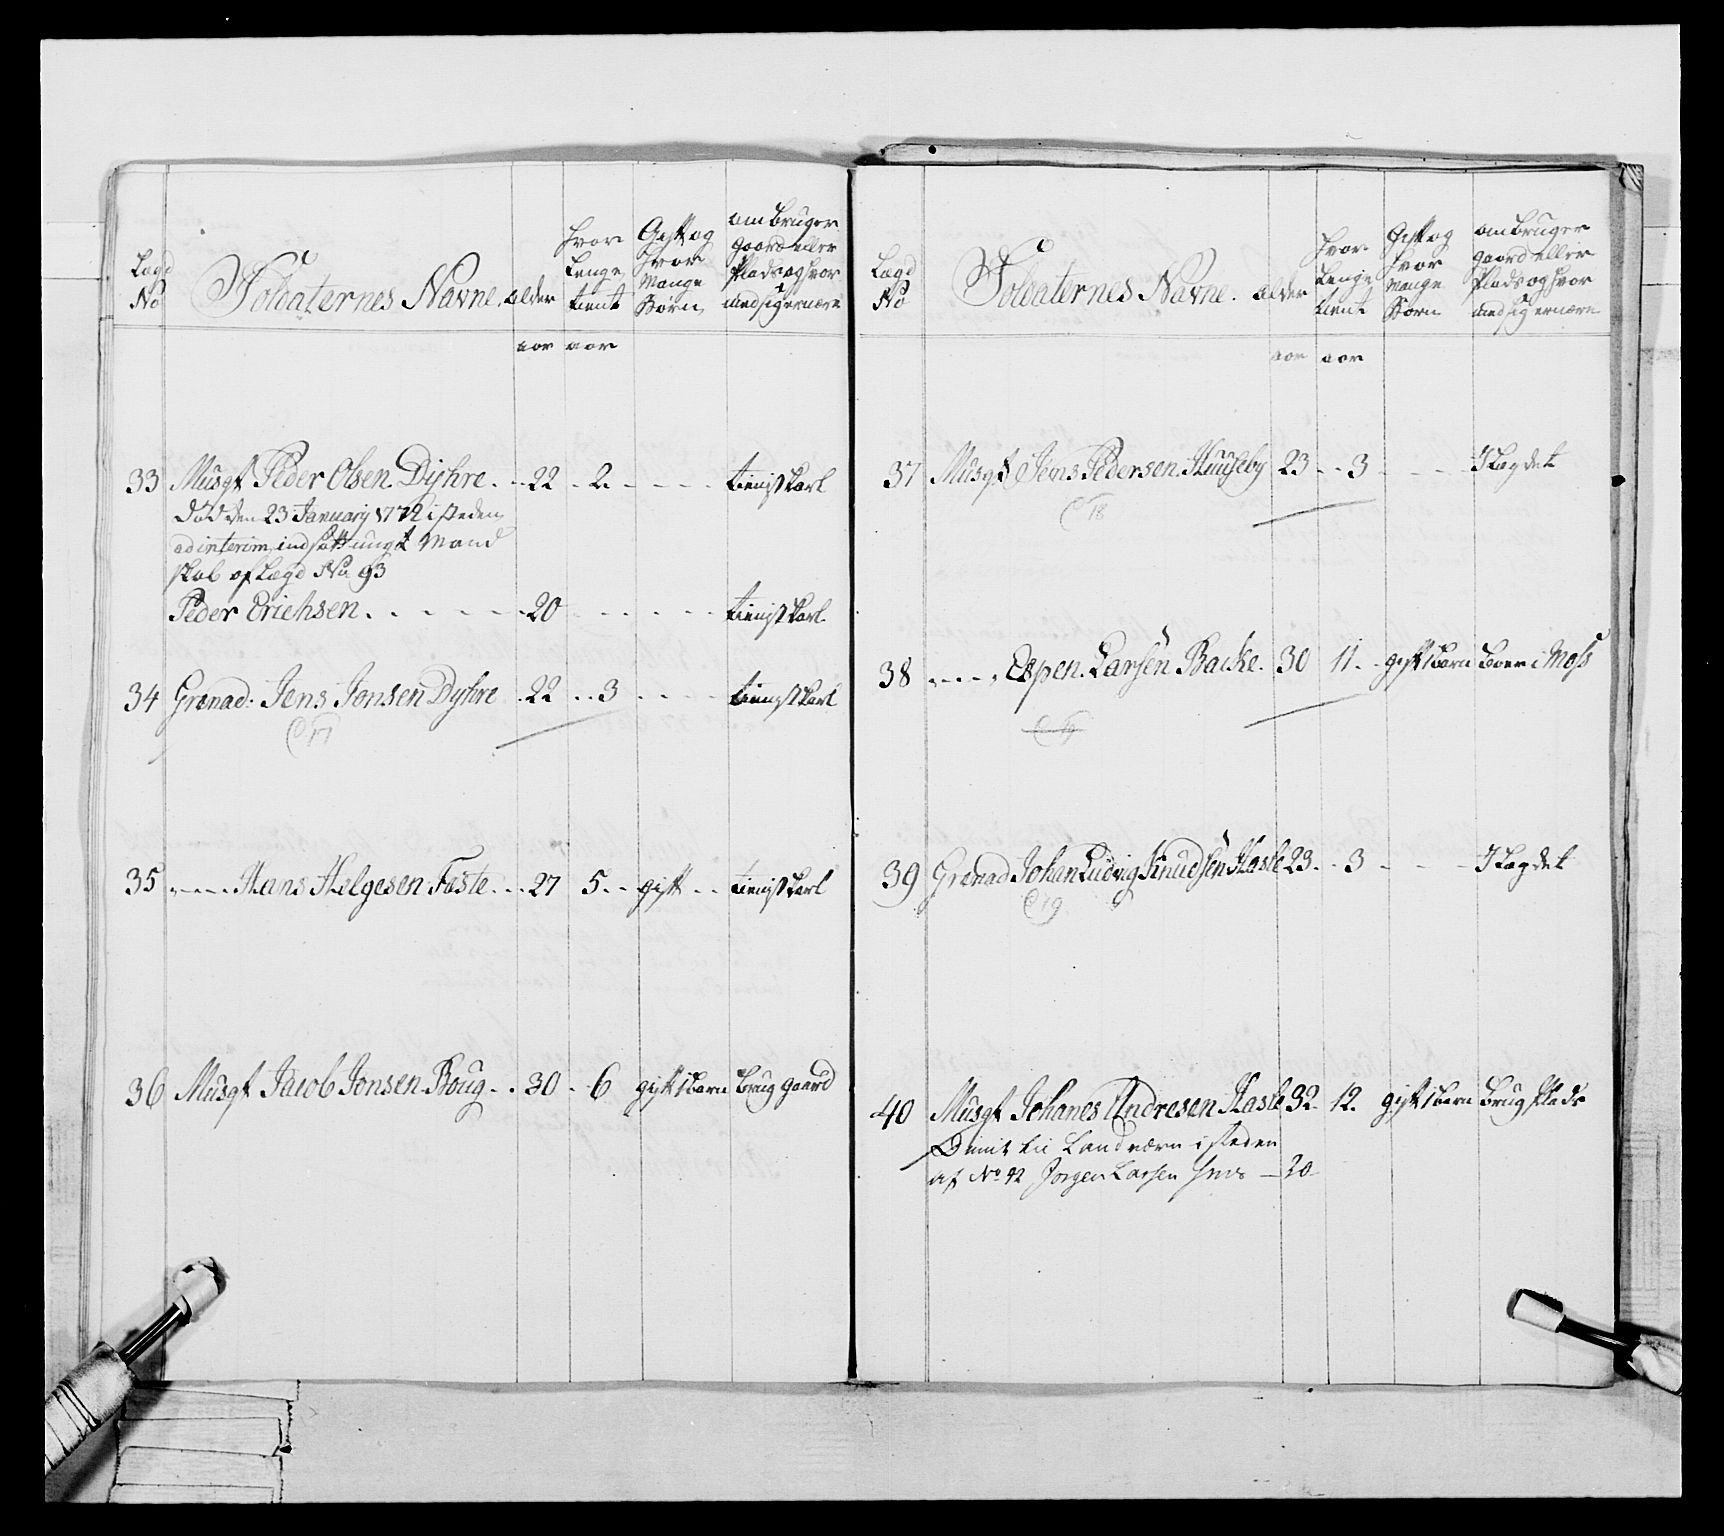 Lægd No
Soldaternes Navne.
alder
hvor Lenge tient
Gift og hvor Mange Børn
om bruger gaard eller Plads og hvor med sig ernære
aar aar
33 Musqt Peder Olsen Dyhre. 22 2. tienist karl
død den 23 January 1772 i steden
ad interim indsatt ungt Mand
skab af Lægd No 93
Peder Erichsen 20 tienist karl.
34 Grenad: Jens Jonsen Dyhre 22 3 tienist karl
C 17
35 Hans Helgesen Faste 27 5 gift tienist karl
36 Musqt Jacob Jonsen Boug 30 6 gift 1 barn brug gaard
Lægd No
Soldaternes Navne.
alder
hvor Lenge tient
Gift og hvor Mange Børn
om bruger gaard eller Plads og hvor med sig ernære
aar aar
37 Musqt Jens Pedersen Huuseby 23 3 I Lægdet
C 18
38 Espen Larsen Backe. 30 11. gift 1 barn boer i Moss
C 19
39 Grenad Johan Ludvig Knudsen Hasle 23 3 I Lægdet
C 19
40 Musqt Johanes Andresen Hasle 32. 12. gift 1 barn brug Plads
Dimit til Landværn i steden
af No 42 Jørgen Larsen 20